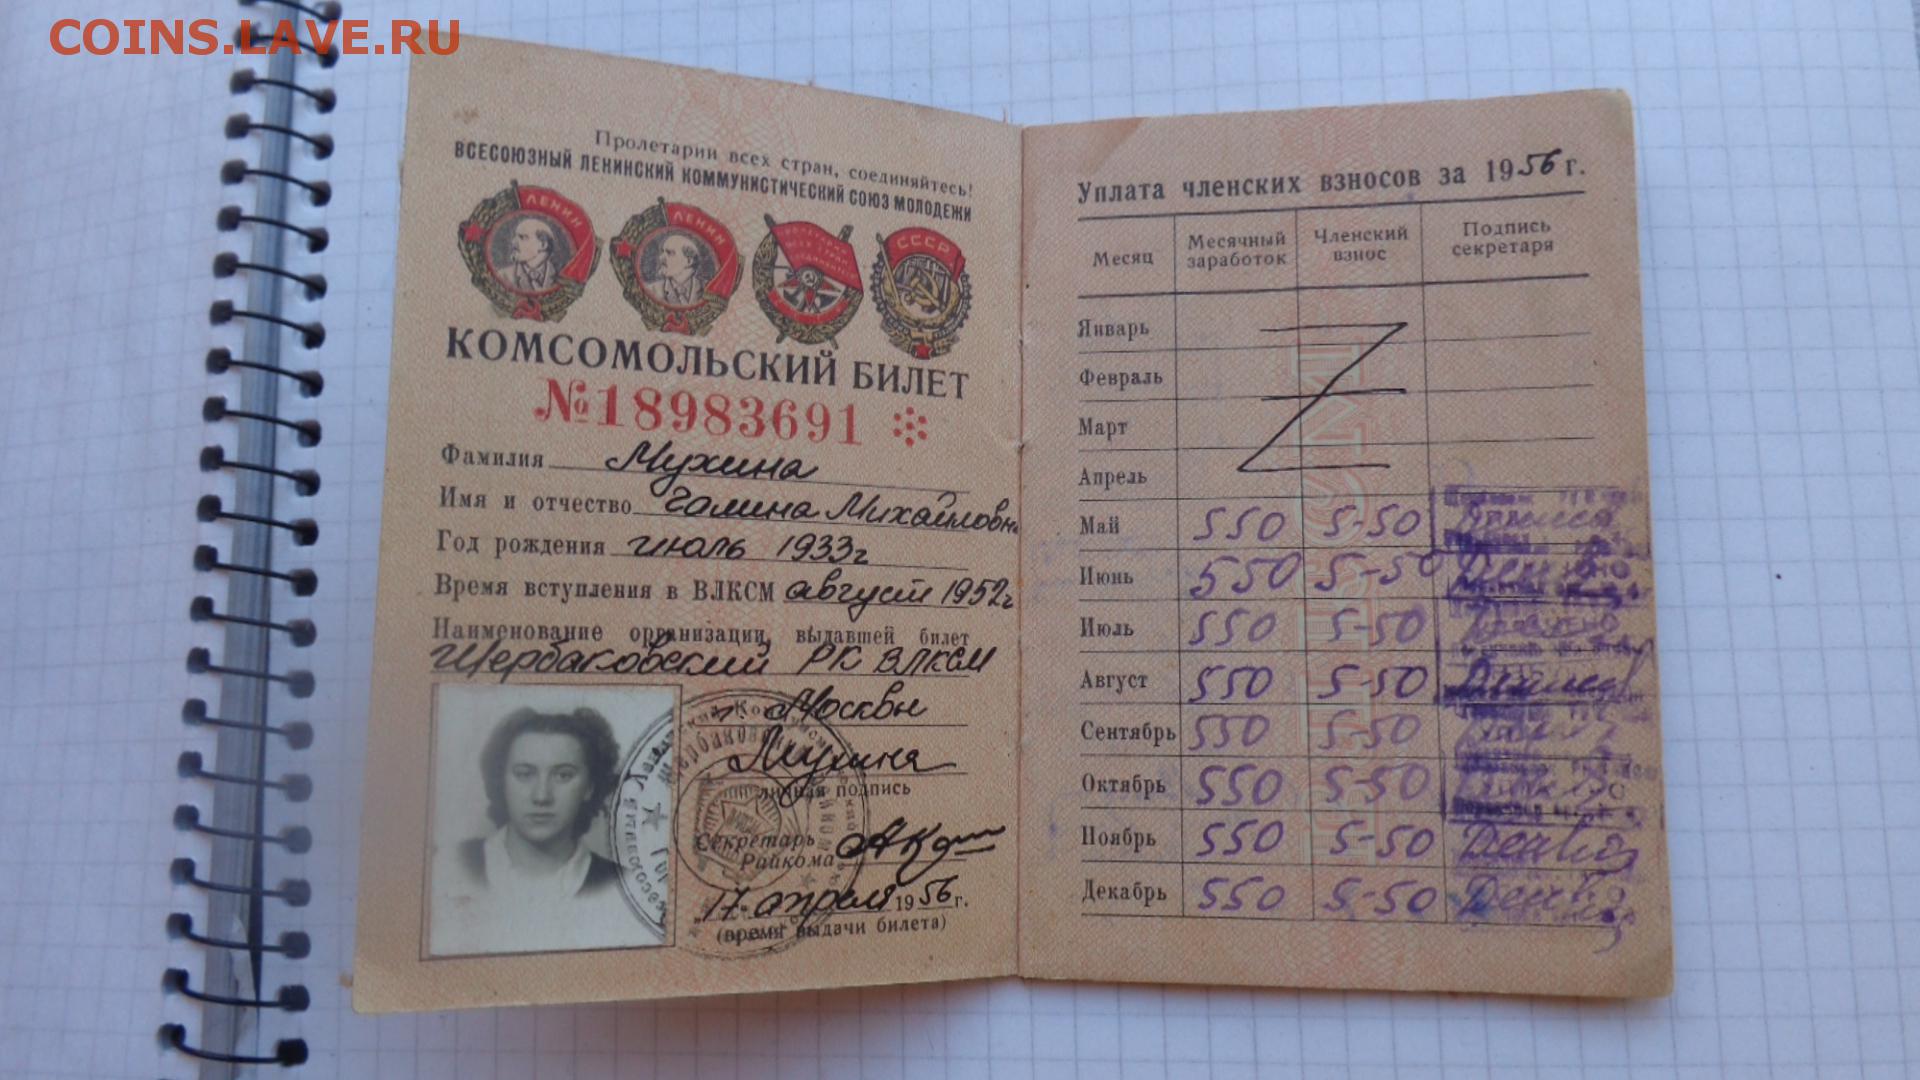 COINS.LAVE.RU
Пролетарии всех стран, соединяйтесь!
ВСЕСОЮЗНЫЙ ЛЕНИНСКИЙ КОММУНИСТИЧЕСКИЙ СОЮЗ МОЛОДЕЖИ
ЛЕНИН ЛЕНИН СССР
КОМСОМОЛЬСКИЙ БИЛЕТ
№18983691
Фамилия Мухина
Имя и отчество Галина Михайловн
Год рождения июль 1933г
Время вступления в ВЛКСМ август 1952г
Наименование организации, выдавшей билет
Щербаковский РК ВЛКСМ
г. Москвы
Мухина
личная подпись
Секретарь
Райкома
"17" апреля 1956 г.
(время выдачи билета)
Уплата членских взносов за 1956 г.
Месяц Месячный заработок Членский взнос Подпись секретаря
Январь
Февраль
Март
Апрель
Май 550 5-50
Июнь 550 5-50
Июль 550 5-50
Август 550 5-50
Сентябрь 550 5-50
Октябрь 550 5-50
Ноябрь 550 5-50
Декабрь 550 5-50